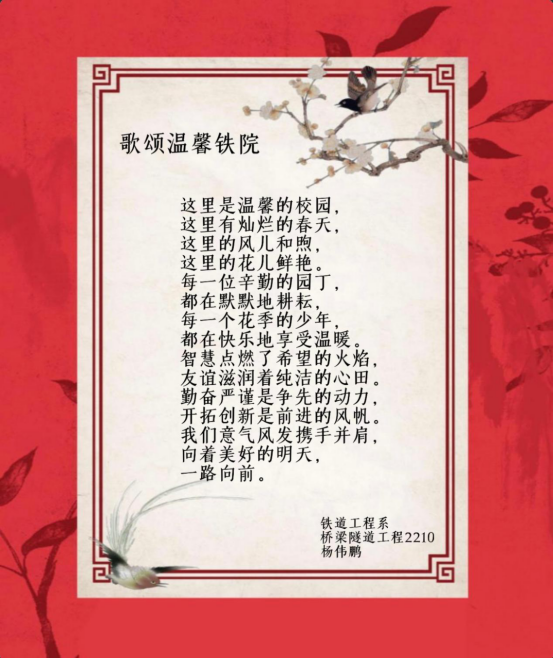 歌颂温馨铁院
这里是温馨的校园，
这里有灿烂的春天，
这里的风儿和煦，
这里的花儿鲜艳。
每一位辛勤的园丁，
都在默默地耕耘，
每一个花季的少年，
都在快乐地享受温暖。
智慧点燃了希望的火焰，
友谊滋润着纯洁的心田。
勤奋严谨是争先的动力，
开拓创新是前进的风帆。
我们意气风发携手并肩，
向着美好的明天，
一路向前。
铁道工程系
桥梁隧道工程2210
杨伟鹏